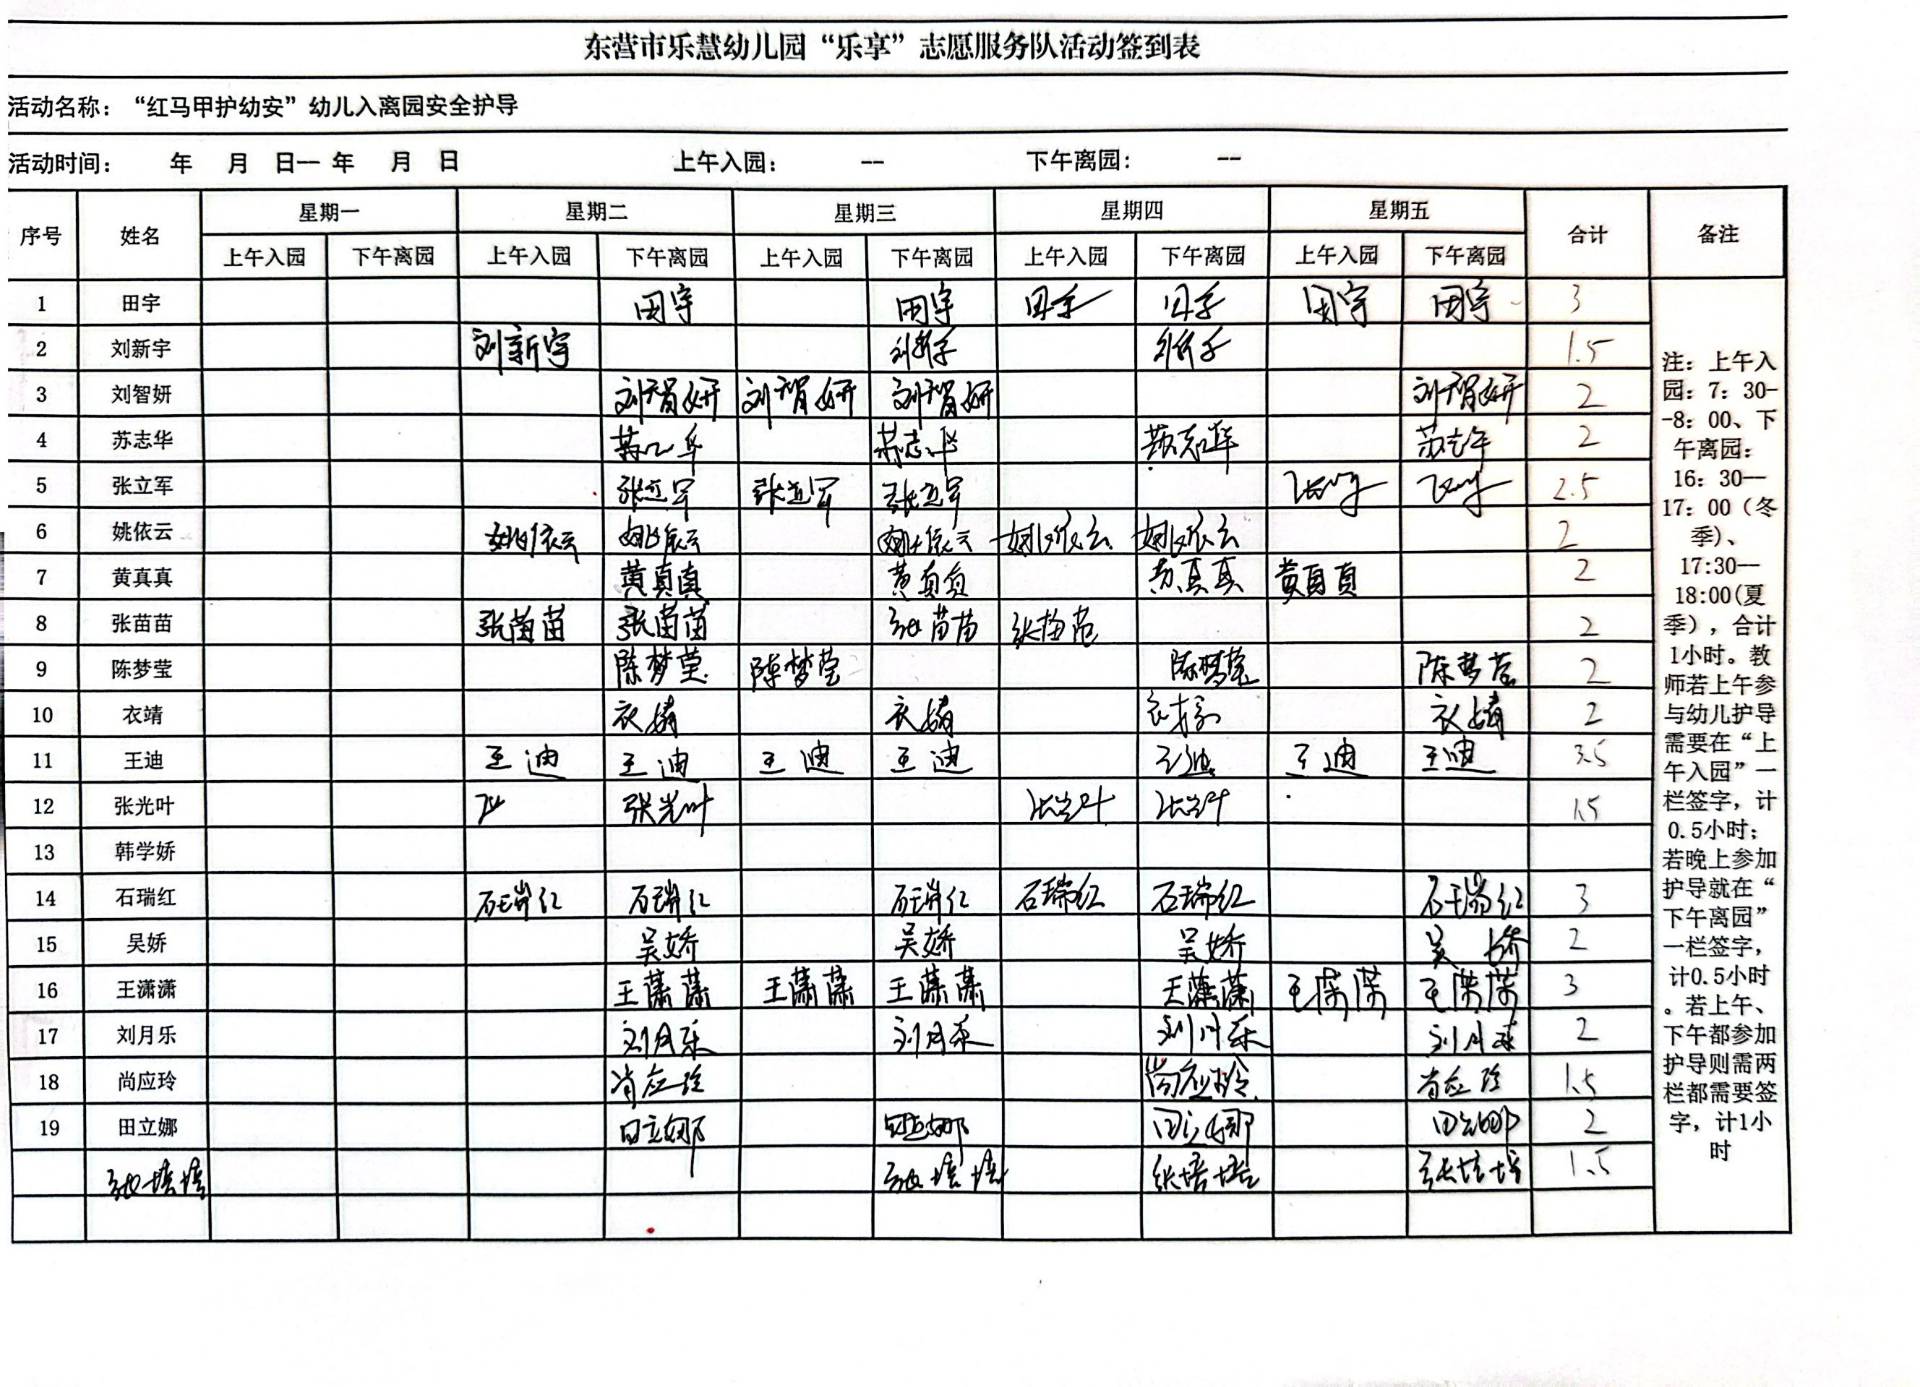 东营市乐慧幼儿园“乐享”志愿服务队活动签到表
活动名称：“红马甲护幼安”幼儿入离园安全护导
活动时间： 年 月 日--年 月 日 上午入园： -- 下午离园： --
序号 姓名 星期一 星期二 星期三 星期四 星期五 合计 备注
上午入园 下午离园 上午入园 下午离园 上午入园 下午离园 上午入园 下午离园 上午入园 下午离园
1 田宇 田宇 田宇 田宇 田宇 田宇 田宇 3
2 刘新宇 刘新宇 刘新宇 刘新宇 1.5
3 刘智妍 刘智妍 刘智妍 刘智妍 刘智妍 2
4 苏志华 苏志华 苏志华 苏志华 苏志华 2
5 张立军 张立军 张立军 张立军 2.5
6 姚依云 姚依云 姚依云 姚依云 姚依云 姚依云 2
7 黄真真 黄真真 黄真真 黄真真 黄真真 2
8 张苗苗 张苗苗 张苗苗 张苗苗 张苗苗 2
9 陈梦莹 陈梦莹 陈梦莹 陈梦莹 陈梦莹 2
10 衣靖 衣婧 衣婧 衣婧 衣婧 2
11 王迪 王迪 王迪 王迪 王迪 王迪 王迪 王迪 3.5
12 张光叶 张光叶 张光叶 张光叶 1.5
13 韩学娇
14 石瑞红 石瑞红 石瑞红 石瑞红 石瑞红 石瑞红 石瑞红 3
15 吴娇 吴娇 吴娇 吴娇 吴娇 2
16 王潇潇 王潇潇 王潇潇 王潇潇 王潇潇 王潇潇 王潇潇 3
17 刘月乐 刘月乐 刘月乐 刘月乐 刘月乐 2
18 尚应玲 尚应玲 尚应玲 尚应玲 1.5
19 田立娜 田立娜 田立娜 田立娜 田立娜 2
张培培 张培培 张培培 张培培 1.5
注：上午入
园：7：30-
-8：00、下
午离园：
16：30—
17：00（冬
季）、
17:30—
18:00(夏
季），合计
1小时。教
师若上午参
与幼儿护导
需要在“上
午入园”一
栏签字，计
0.5小时；
若晚上参加
护导就在“
下午离园”
一栏签字，
计0.5小时
。若上午、
下午都参加
护导则需两
栏都需要签
字，计1小
时